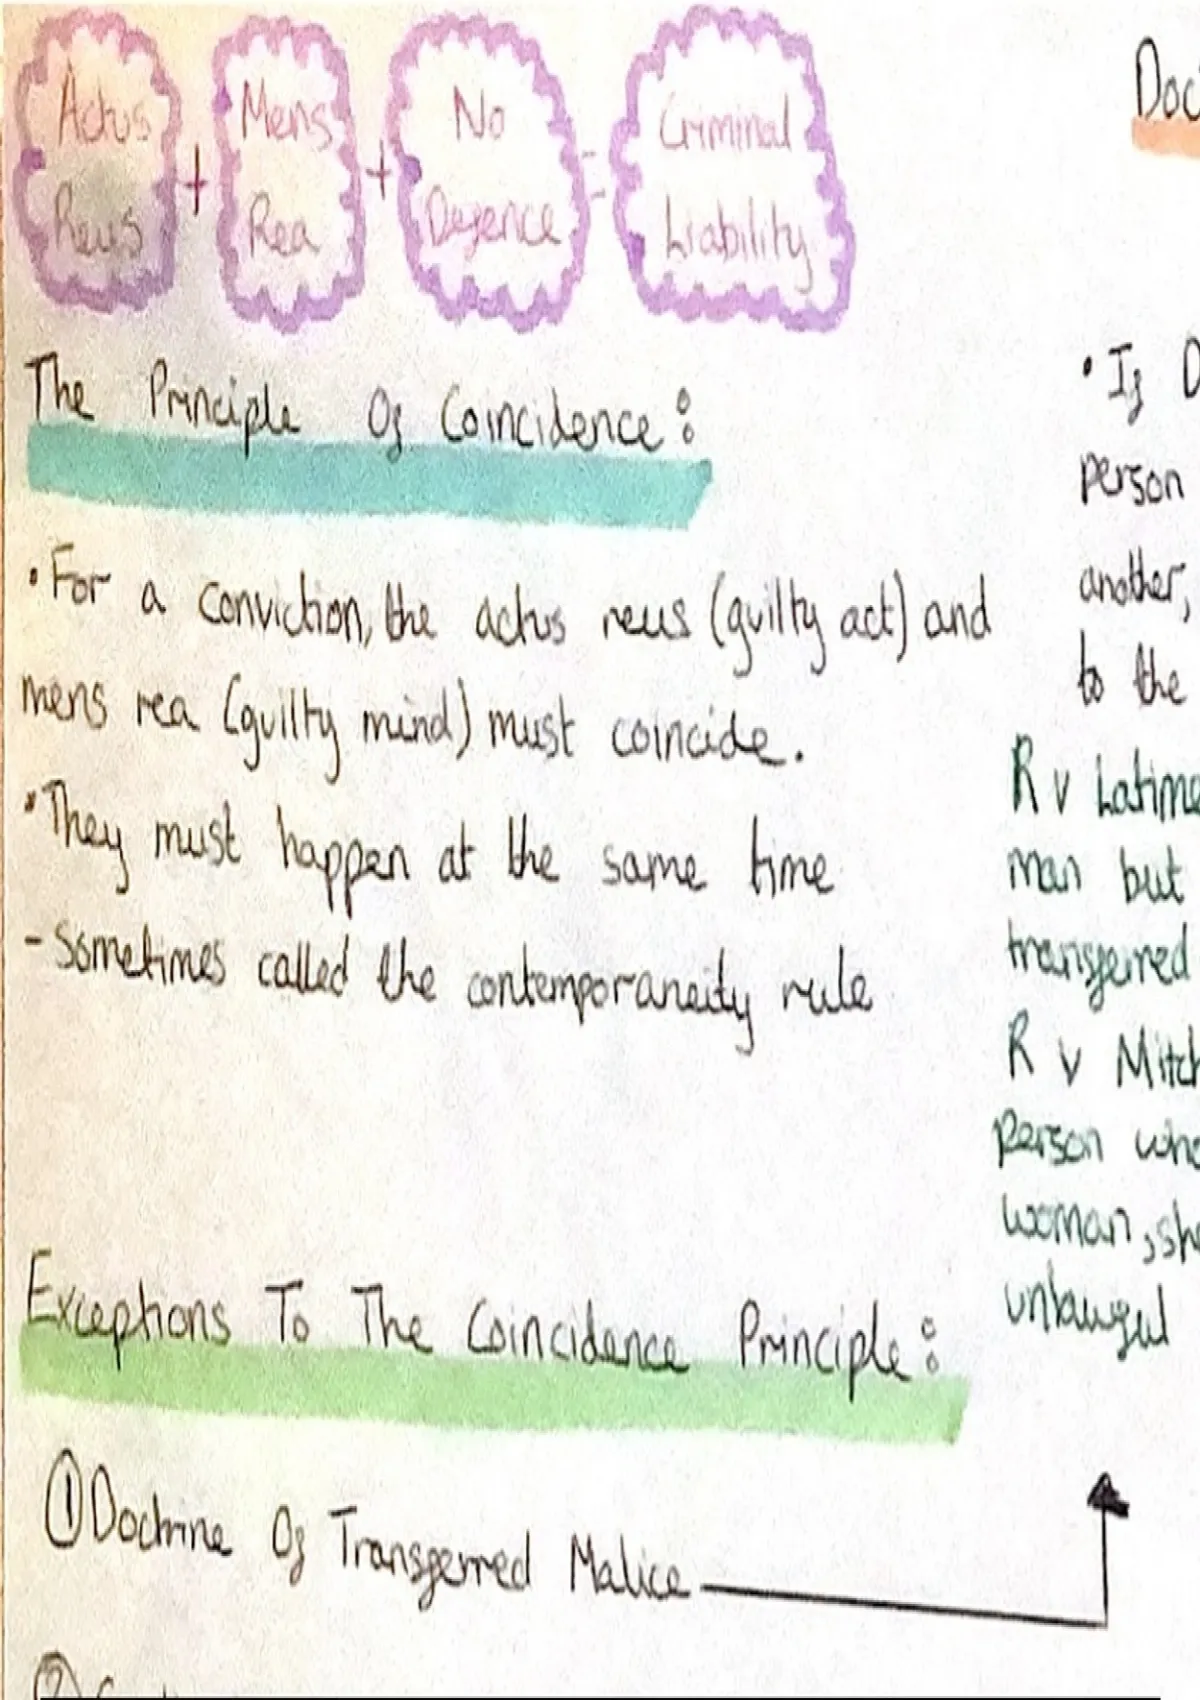 Actus
Reus
+
Mens
Rea
+
No
Defence
=
Criminal
Liability
The Principle Of Coincidence:
• For a conviction, the actus reus (guilty act) and
mens rea (guilty mind) must coincide.
• They must happen at the same time
- Sometimes called the contemporaneity rule
Exceptions To The Coincidence Principle:
① Doctrine Of Transferred Malice
②
Doc
• If D
person
another,
to the
R v Latime
man but
transferred
R v Mitch
person who
woman, she
unlawful